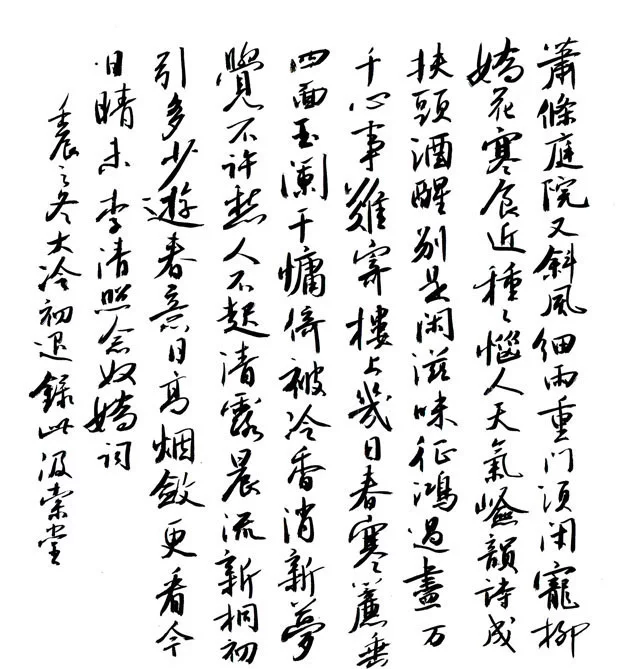 蕭條庭院又斜風細雨重门須闭寵柳
嬌花寒食近種〻惱人天氣嶮韻詩成
扶頭酒醒别是闲滋味征鴻過盡万
千心事難寄樓上幾日春寒簾垂
四面玉阑干慵倚被冷香消新夢
覺不許愁人不起清露晨流新桐初
引多少遊春意日高烟斂更看今
日晴未李清照念奴嬌詞
壬辰之冬大冷初退錄此